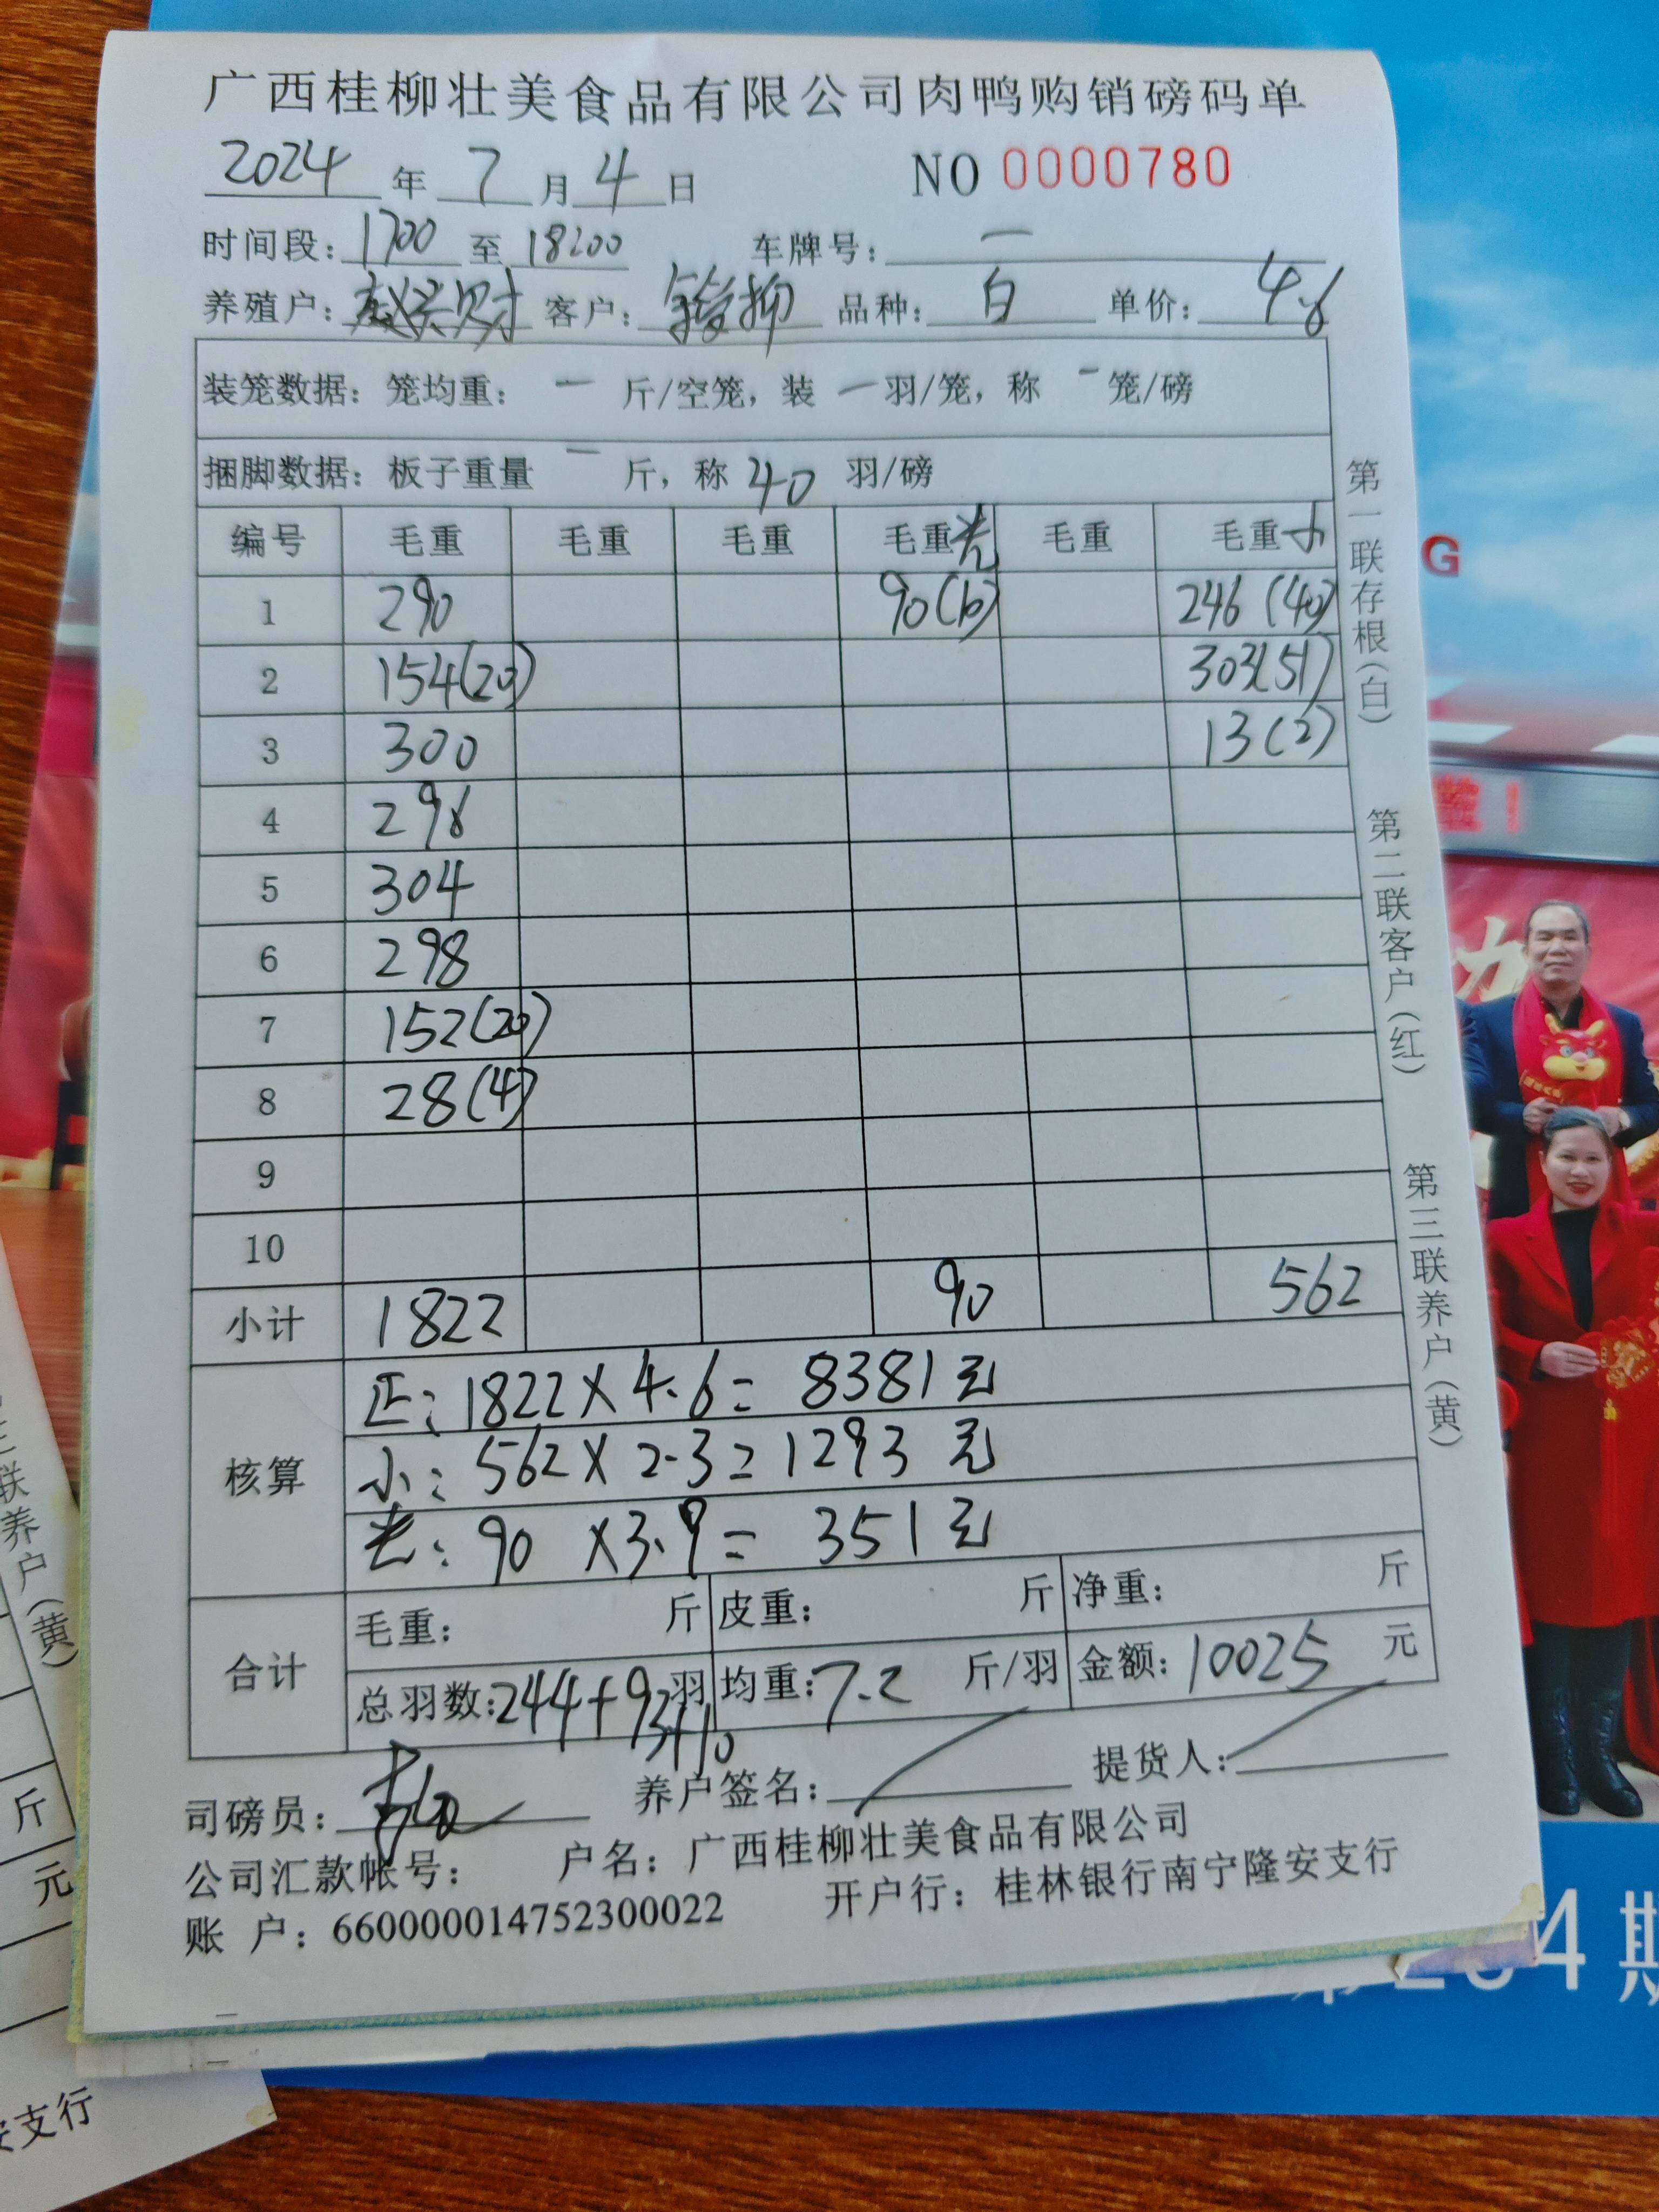 广西桂柳壮美食品有限公司肉鸭购销磅码单
2024 年 7 月 4 日 NO 0000780
时间段: 1700 至 18:00 车牌号: 一
养殖户: 客户: 品种: 白 单价: 4.6
装笼数据: 笼均重: 一 斤/空笼, 装 一 羽/笼, 称 - 笼/磅
捆脚数据: 板子重量 一 斤, 称 40 羽/磅
编号 毛重 毛重 毛重 毛重光 毛重 毛重小
1 290 90(10) 246 (40)
2 154(20) 303(51)
3 300 13(2)
4 296
5 304
6 298
7 152(20)
8 28(4)
9
10
小计 1822 90 562
核算
正: 1822 × 4.6 = 8381 元
小: 562 × 2.3 = 1293 元
光: 90 ×3.9 = 351 元
合计
毛重: 斤 皮重: 斤 净重: 斤
总羽数: 244+93+10 羽 均重: 7.2 斤/羽 金额: 10025 元
司磅员: 养户签名: 提货人:
公司汇款帐号: 户名: 广西桂柳壮美食品有限公司
账 户: 660000014752300022 开户行: 桂林银行南宁隆安支行
第一联存根(白)
第二联客户(红)
第三联养户(黄)
G
联养户(黄)
斤
元
安支行
4 期